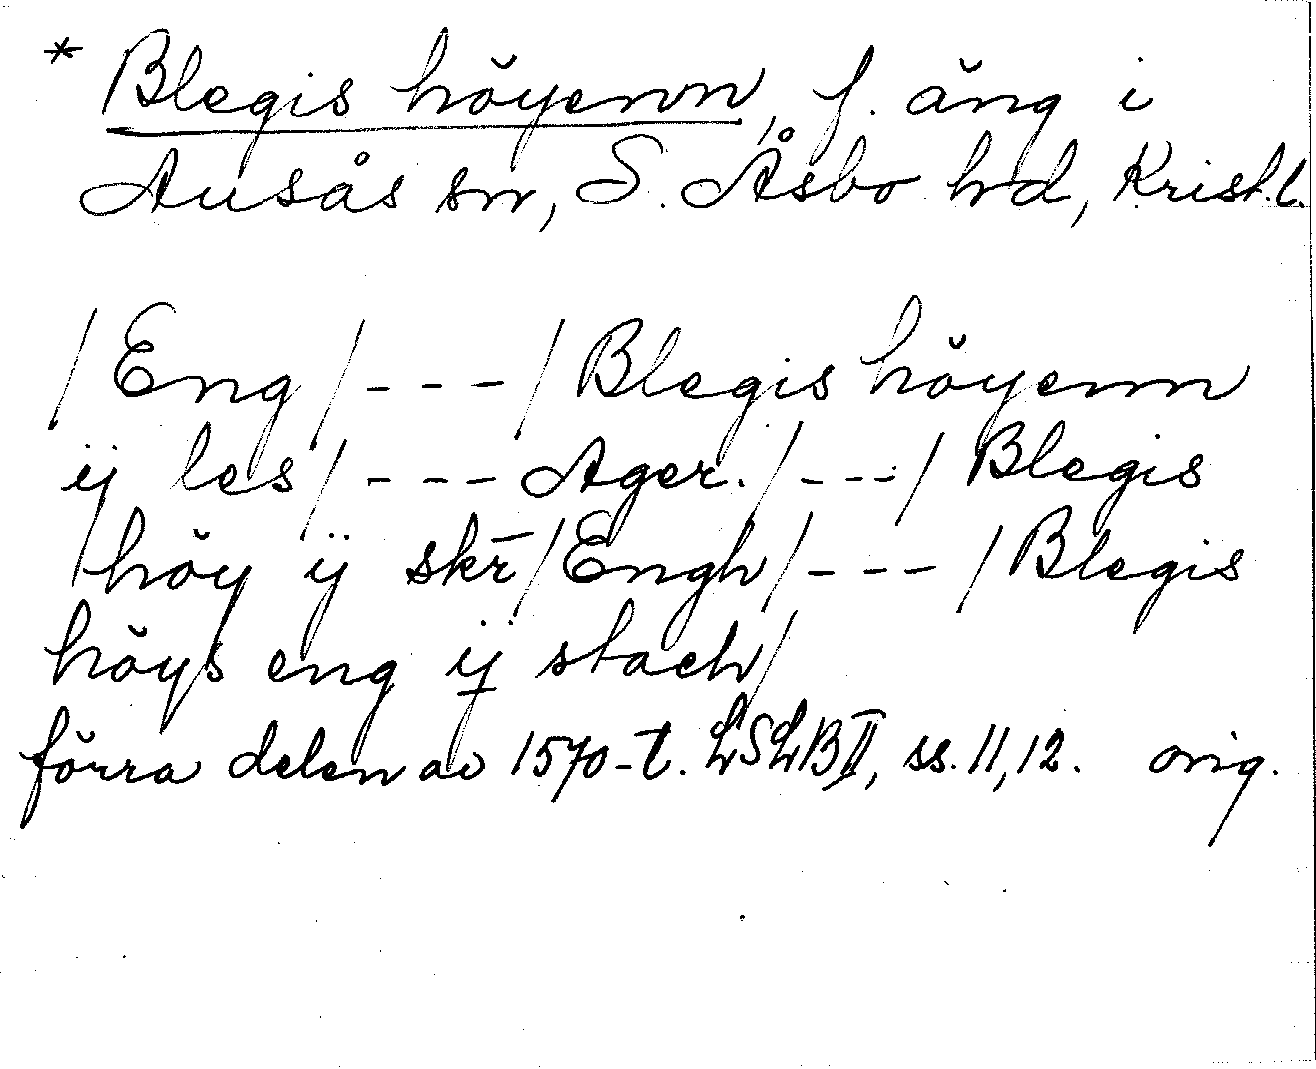 * Blegis höyenn, f. äng i
Ausås sn, S. Åsbo hd, Krist.l.
/Eng/---/Blegis höyenn
ij les/---Ager./---/Blegis
höy ij skr̄/Engh/---/Blegis
höys eng ij stach/
förra delen av 1570-t. LSLB II, ss. 11, 12. orig.